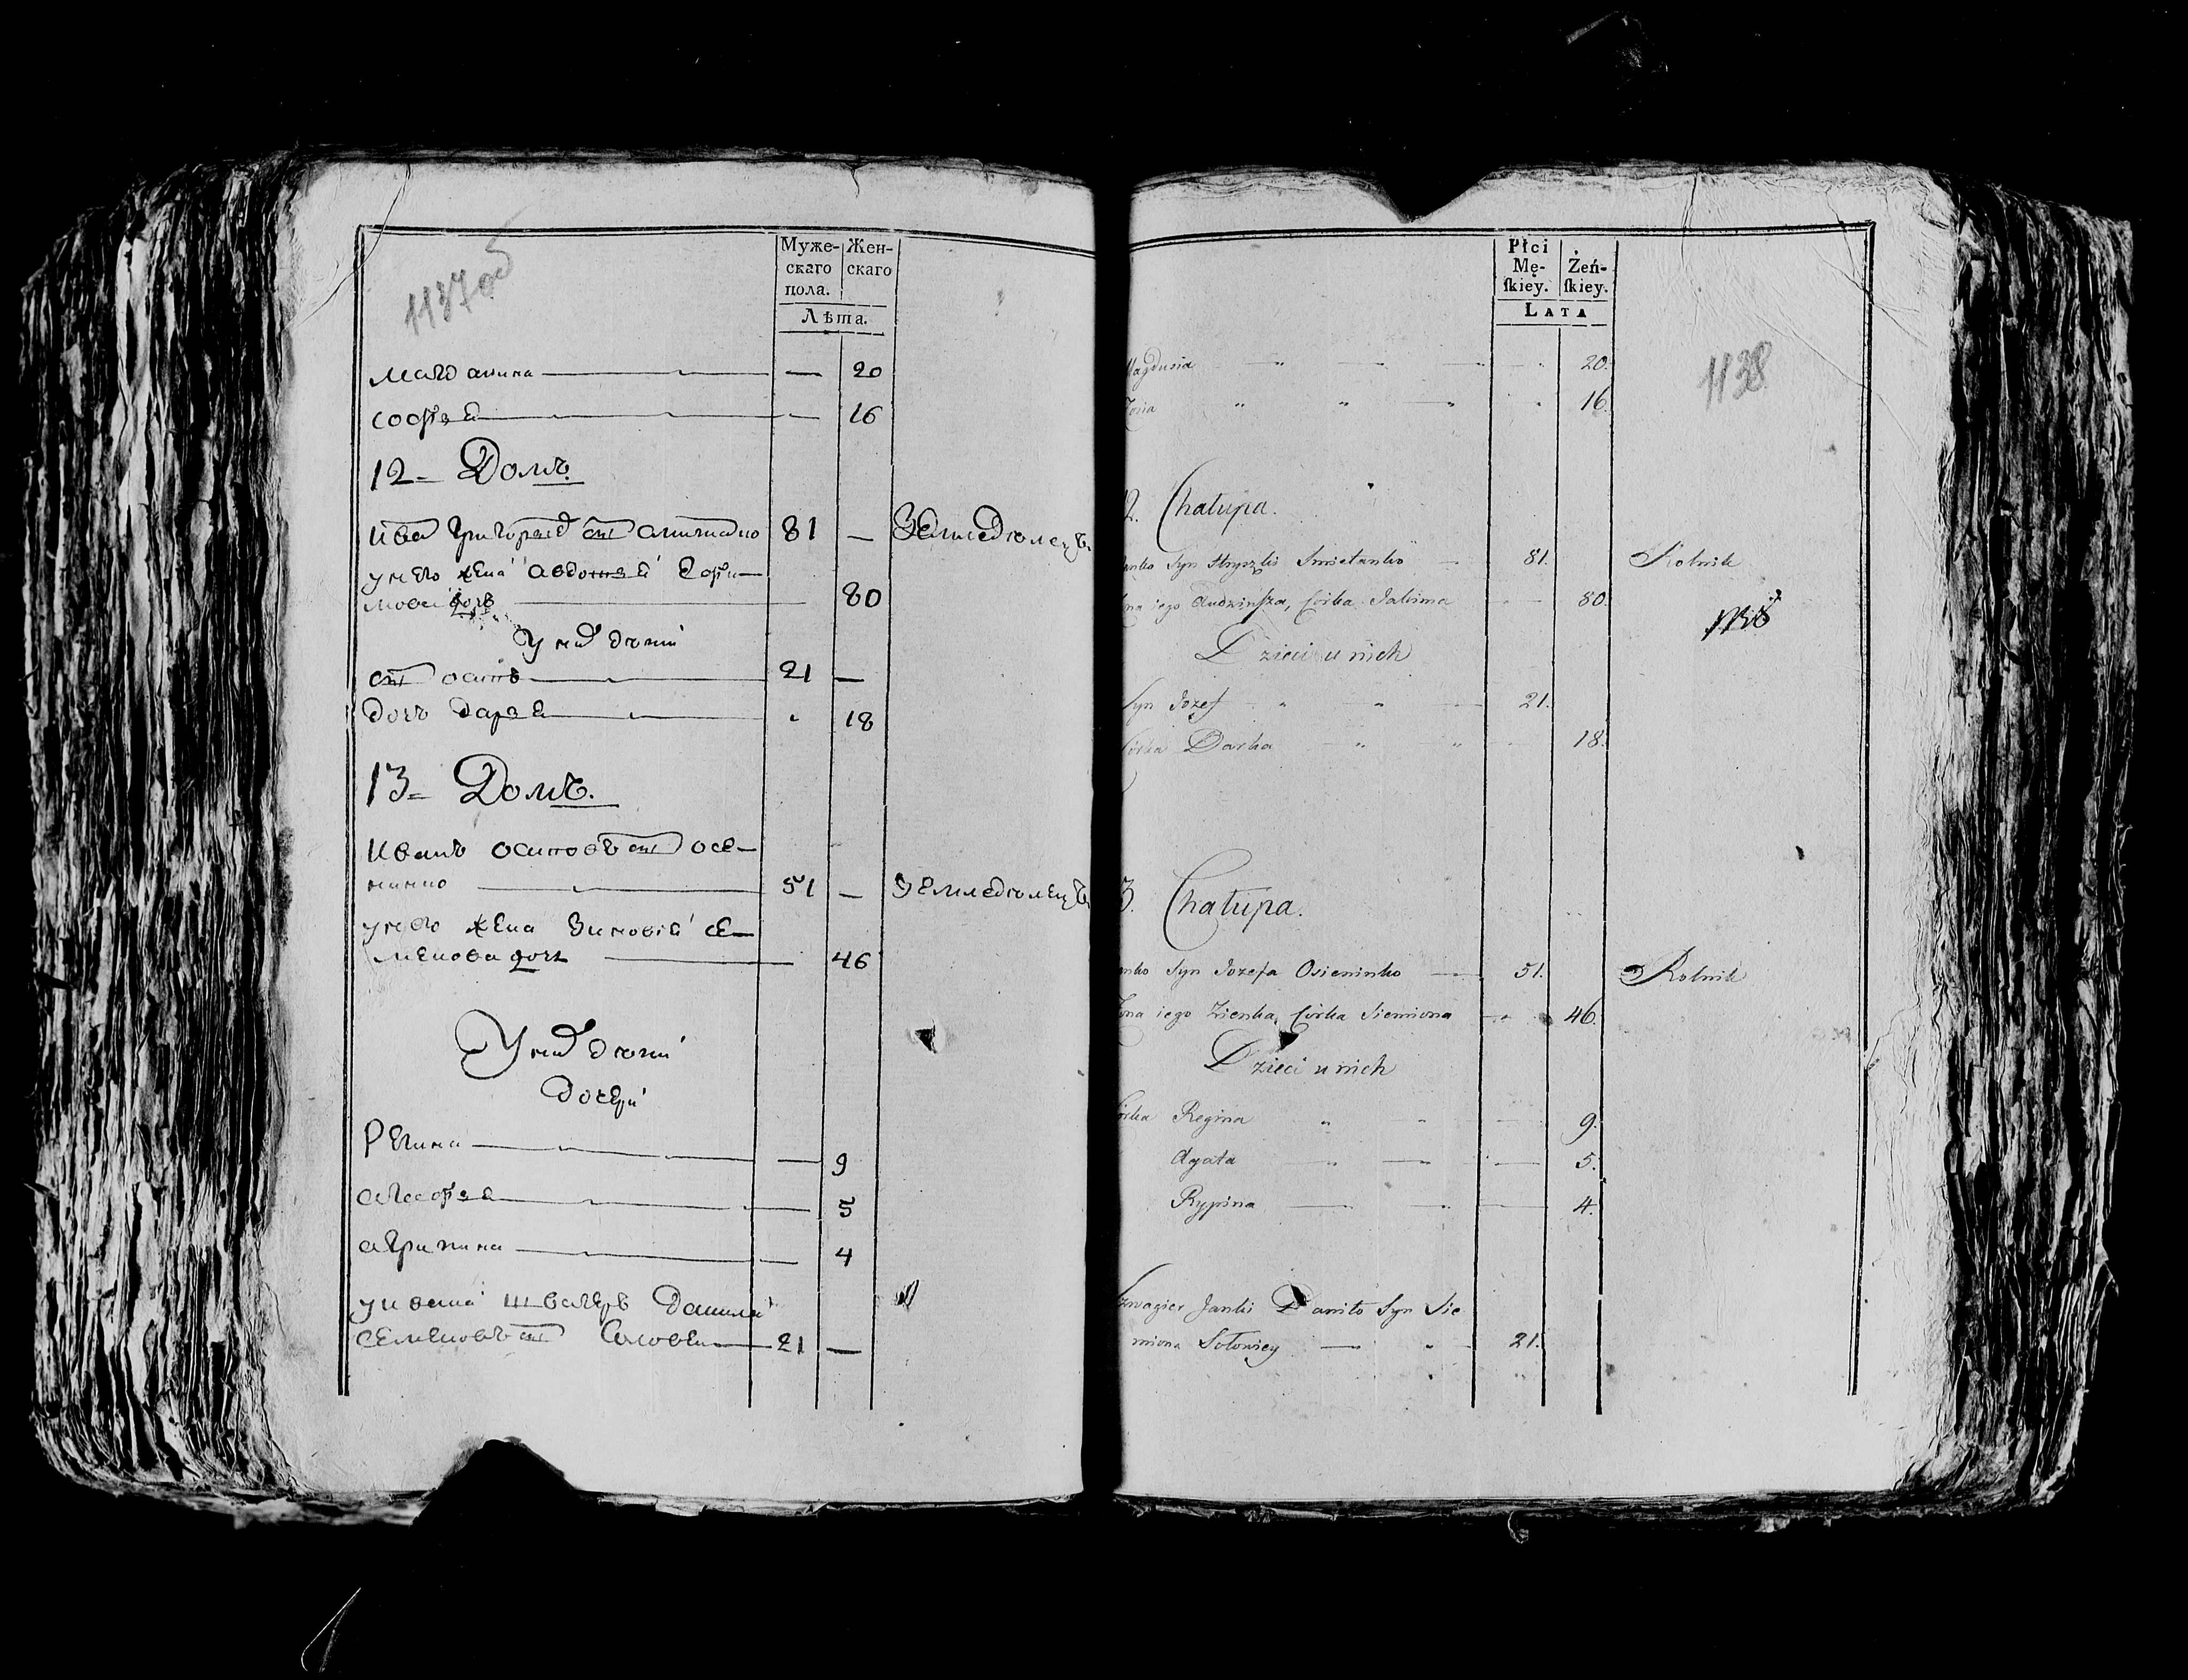 1137об
Муже-
скаго
пола.
Жен-
скаго
Лѣта.
Магдалина — 20
Софѣя — 16
12 - Домъ.
Ива Григорьев сын Смитанко 81 — Земледѣлецъ
у него жена Авдотья Ефи-
мова дочь 80
У них дѣти
сын Осипъ 21 —
дочь Дарья 18
13 - Домъ.
Иванъ Осиповъ сын Осе-
нинко 51 — Земледѣлецъ
у него жена Зиновія Се-
менова дочь 46
У них дѣти
дочери
Регина — 9
Агафья — 5
Агрипина — 4
у Ивана швагеръ Данила
Семеновъ сын Соловей 21 —
Płci
Mę-
ſkiey.
Żeń-
ſkiey.
LATA
1138
Magdusia 20.
Zosia 16.
12. Chałupa.
Syn Hryszki Smietanko 81. Rolnik
iego Córka 80.
1138
Dzieci u nich
Syn Jozef 21.
Córka Darka 18.
13. Chałupa.
Syn Jozefa Osieninko 51. Rolnik
Żona iego Zienka, Córka Siemiona 46.
Dzieci u nich
Córka Regina 9.
Agata 5.
Rypina 4.
Szwagier Janki Daniło Syn Sie
miona Sołowiey 21.